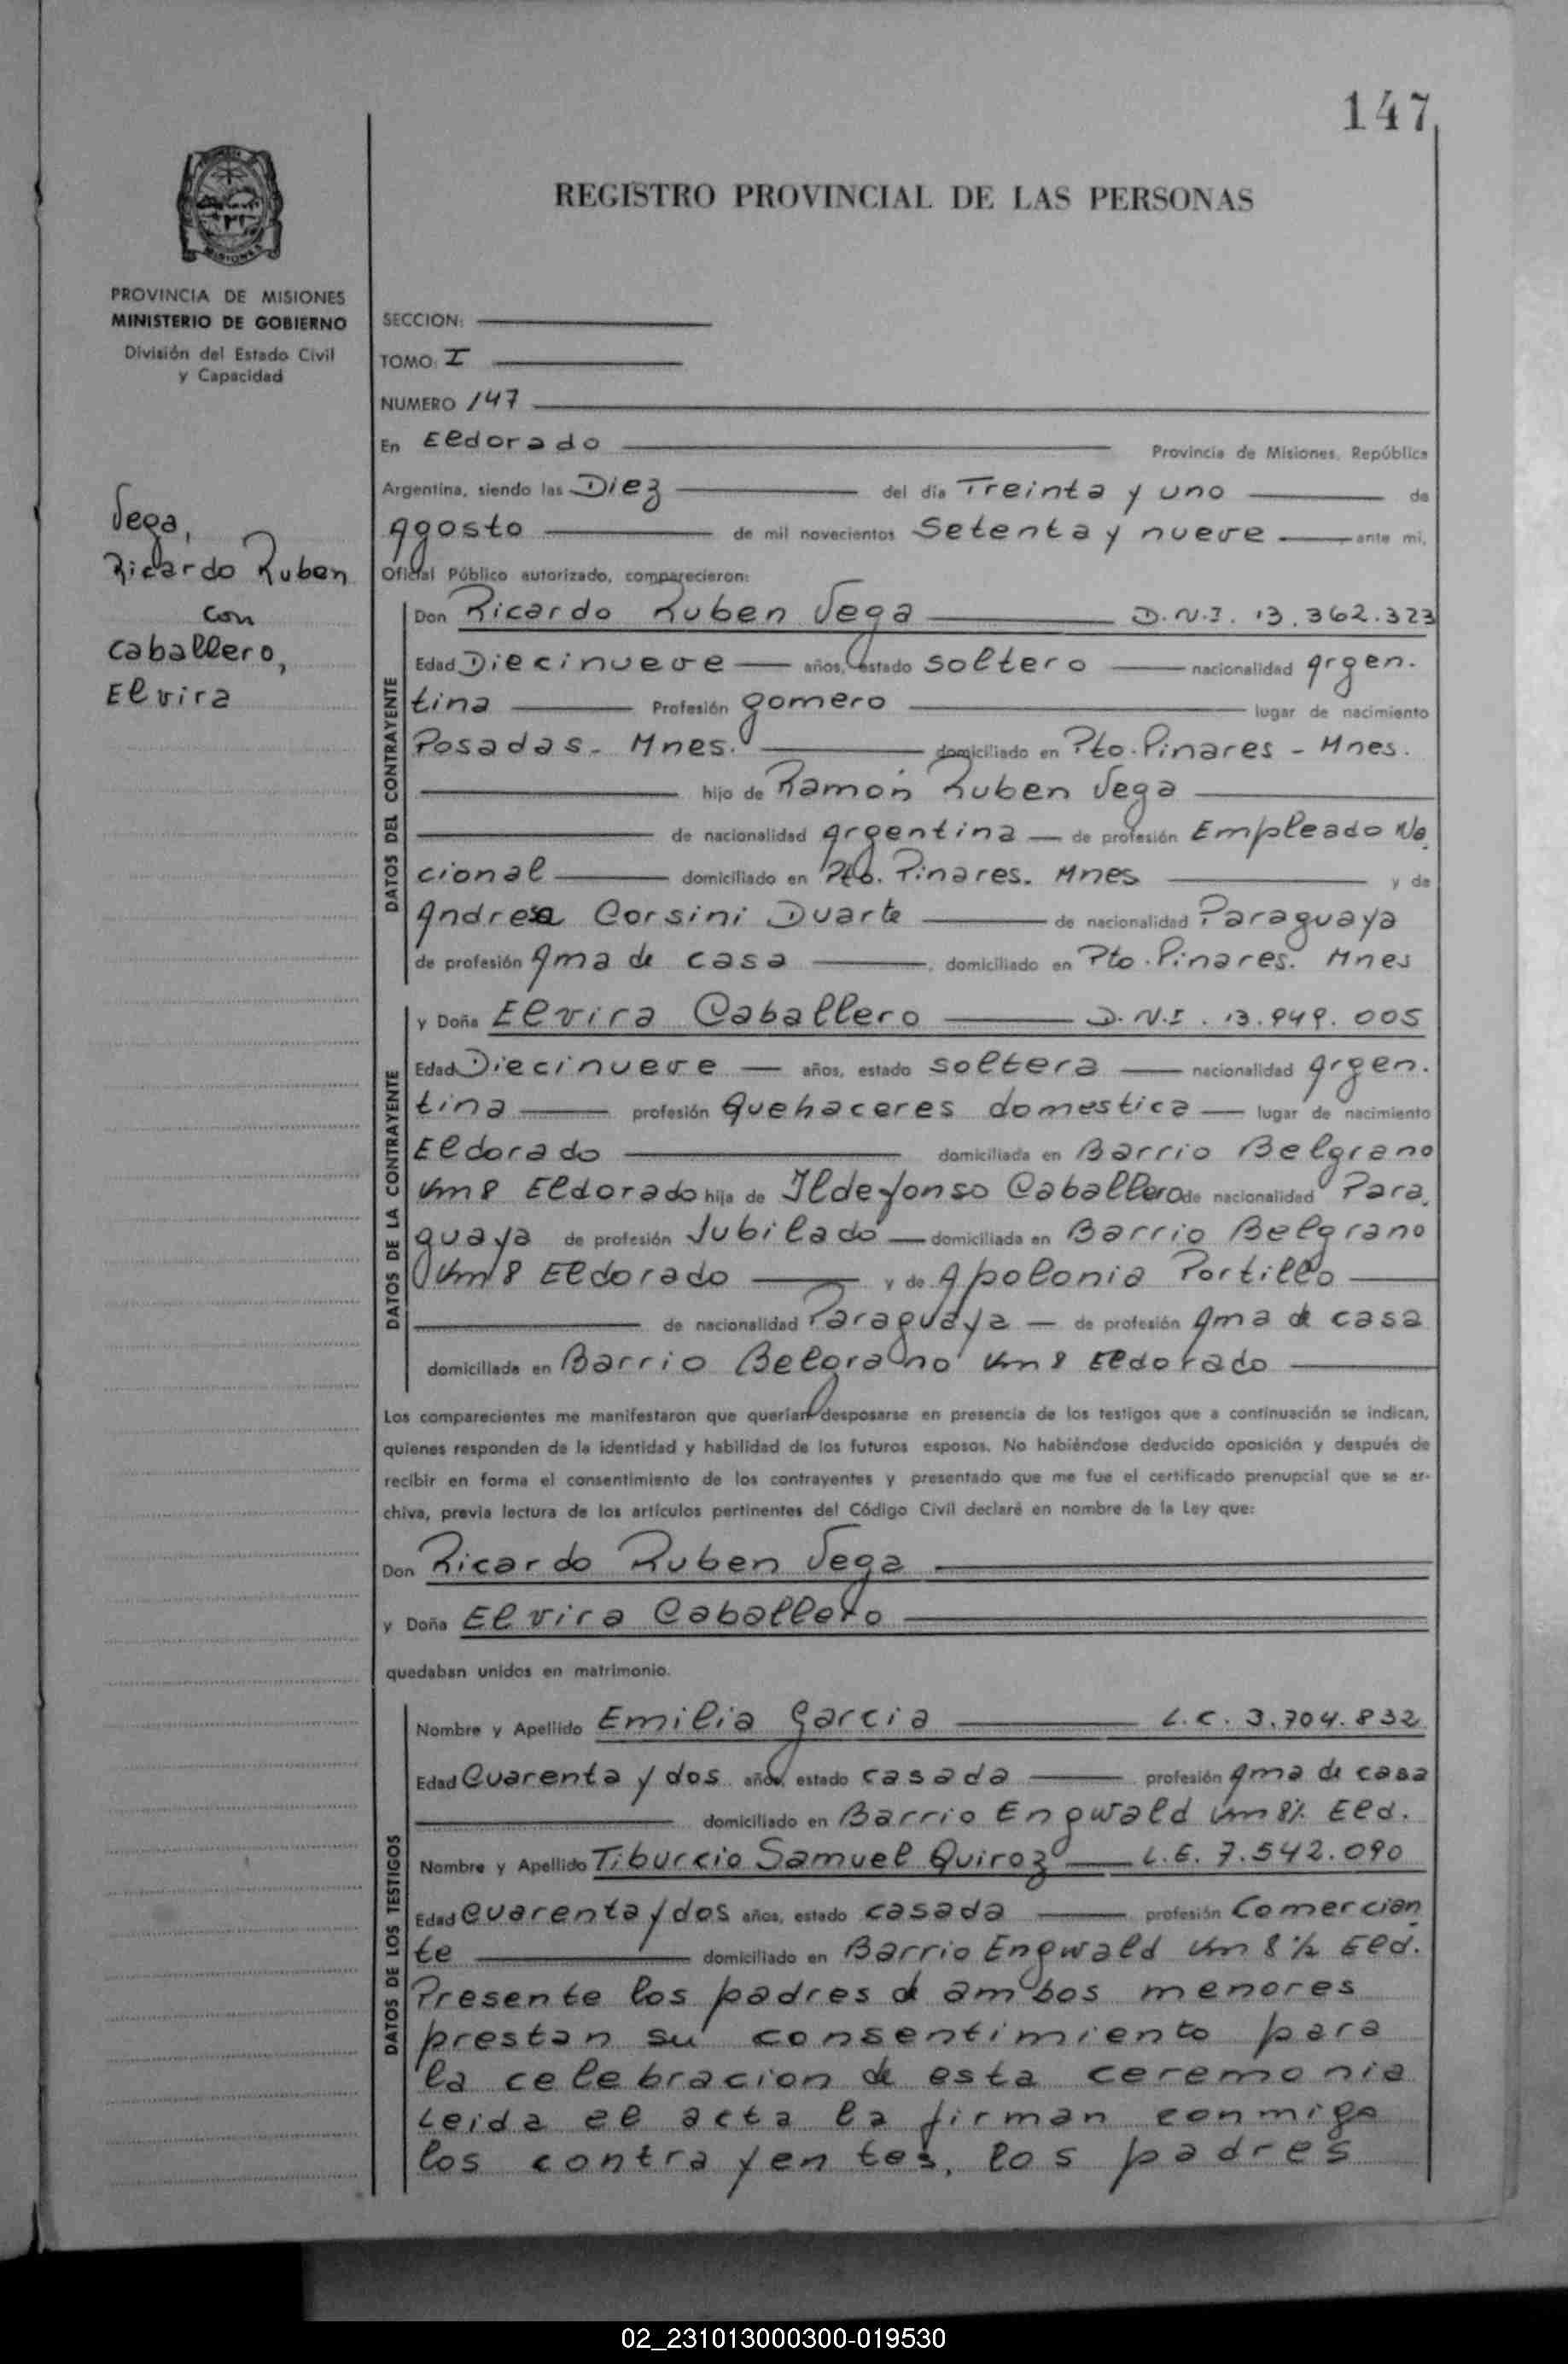 147
REGISTRO PROVINCIAL DE LAS PERSONAS
MISIONES
PROVINCIA DE MISIONES
MINISTERIO DE GOBIERNO
División del Estado Civil
y Capacidad
Vega,
Ricardo Ruben
con
Caballero,
Elvira
SECCION:
TOMO: I
NUMERO 147
En Eldorado Provincia de Misiones, República
Argentina, siendo las Diez del día Treinta y uno de
Agosto de mil novecientos Setenta y nueve ante mi,
Oficial Público autorizado, comparecieron:
DATOS DEL CONTRAYENTE
Don Ricardo Ruben Vega D.N.I. 13.362.323
Edad Diecinueve años, estado soltero nacionalidad Argen.
tina Profesión gomero lugar de nacimiento
Posadas - Mnes. domiciliado en Pto. Pinares - Mnes.
hijo de Ramón Ruben Vega
de nacionalidad Argentina de profesión Empleado Na
cional domiciliado en Pto. Pinares. Mnes y de
Andresa Corsini Duarte de nacionalidad Paraguaya
de profesión Ama de casa, domiciliado en Pto. Pinares. Mnes
DATOS DE LA CONTRAYENTE
y Doña Elvira Caballero D.N.I. 13.949.005
Edad Diecinueve años, estado soltera nacionalidad Argen.
tina profesión Quehaceres domestica lugar de nacimiento
Eldorado domiciliada en Barrio Belgrano
Km 8 Eldorado hija de Ildefonso Caballero de nacionalidad Para.
guaya de profesión Jubilado domiciliada en Barrio Belgrano
Km 8 Eldorado y de Apolonia Portillo
de nacionalidad Paraguaya de profesión Ama de casa
domiciliada en Barrio Belgrano Km 8 Eldorado
Los comparecientes me manifestaron que querían desposarse en presencia de los testigos que a continuación se indican,
quienes responden de la identidad y habilidad de los futuros esposos. No habiéndose deducido oposición y después de
recibir en forma el consentimiento de los contrayentes y presentado que me fue el certificado prenupcial que se ar-
chiva, previa lectura de los artículos pertinentes del Código Civil declaré en nombre de la Ley que:
Don Ricardo Ruben Vega
y Doña Elvira Caballero
quedaban unidos en matrimonio.
DATOS DE LOS TESTIGOS
Nombre y Apellido Emilia Garcia L.C. 3.704.832
Edad Cuarenta y dos años, estado casada profesión Ama de casa
domiciliado en Barrio Engwald Km 8½ Eld.
Nombre y Apellido Tiburcio Samuel Quiroz L.E. 7.542.090
Edad Cuarenta y dos años, estado casada profesión Comercian
te domiciliado en Barrio Engwald Km 8 ½ Eld.
Presente los padres de ambos menores
prestan su consentimiento para
la celebracion de esta ceremonia
Leida el acta la firman conmigo
los contrayentes, los padres
02_231013000300-019530